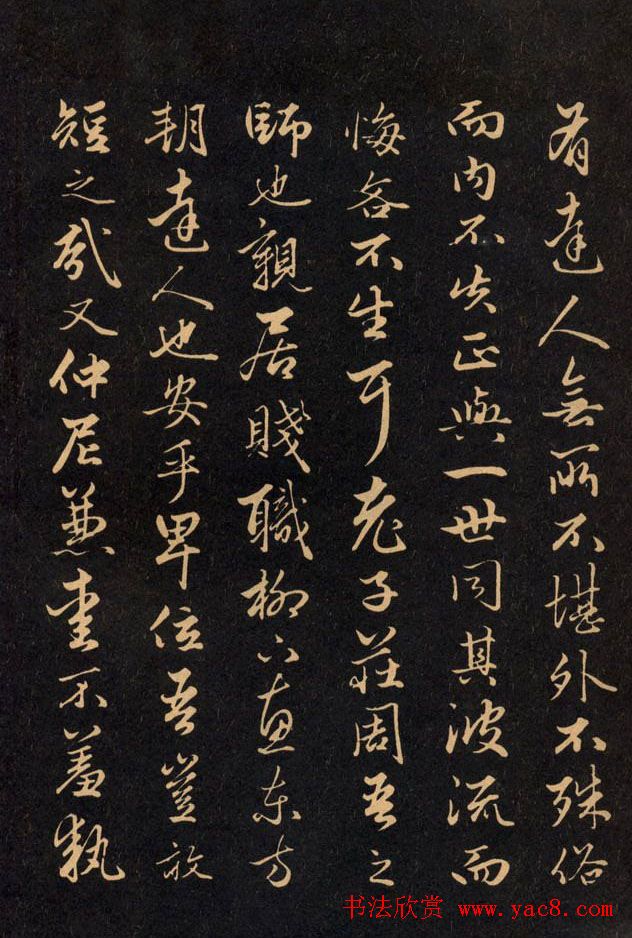 有達人無所不堪外不殊俗
而内不失正與一世同其波流而
悔吝不生耳老子莊周吾之
師也親居賤職柳下惠東方
朔達人也安乎卑位吾豈敢
短之哉又仲尼兼愛不羞執
书法欣赏 www.yac8.com